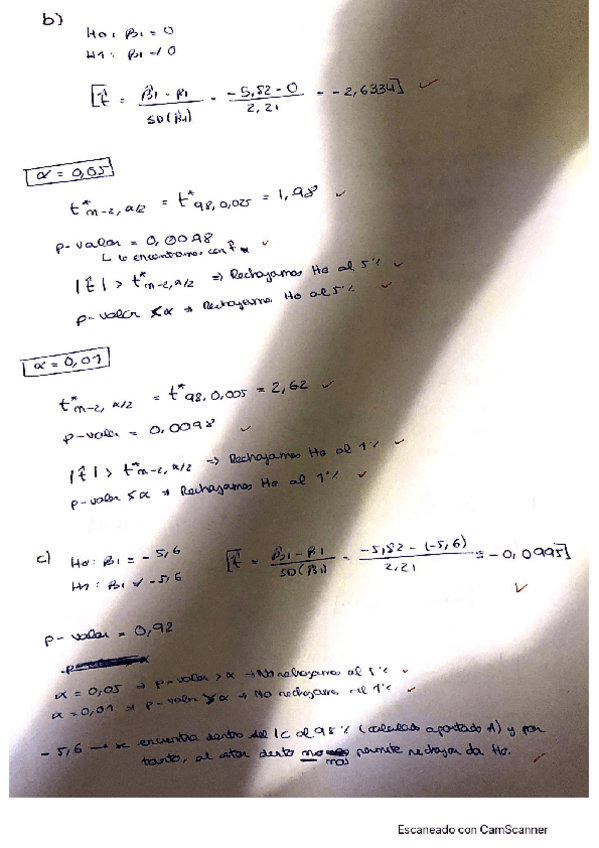 b)
H0: β1 = 0
H1: β1 ≠ 0
[t̂ = β̂1 - β1 / SD(β̂1) = -5,82 - 0 / 2,21 = -2,6334]
α = 0,05
t*n-2, α/2 = t*98, 0,025 = 1,98
p-valor = 0,0098
↳ lo encontramos con t̂
|t̂| > t*n-2, α/2 ⇒ Rechazamos H0 al 5%
p-valor < α → Rechazamos H0 al 5%
α = 0,01
t*n-2, α/2 = t*98, 0,005 = 2,62
p-valor = 0,0098
|t̂| > t*n-2, α/2 ⇒ Rechazamos H0 al 1%
p-valor < α → Rechazamos H0 al 1%
c) H0: β1 = -5,6 [t̂ = β̂1 - β1 / SD(β̂1) = -5,82 - (-5,6) / 2,21 = -0,0995]
H1: β1 ≠ -5,6
p-valor = 0,92
α = 0,05 → p-valor > α → No rechazamos al 5%
α = 0,01 → p-valor > α → No rechazamos al 1%
-5,6 → se encuentra dentro del IC al 95% (calculado apartado A) y por
tanto, al estar dentro no nos permite rechazar la H0.
Escaneado con CamScanner